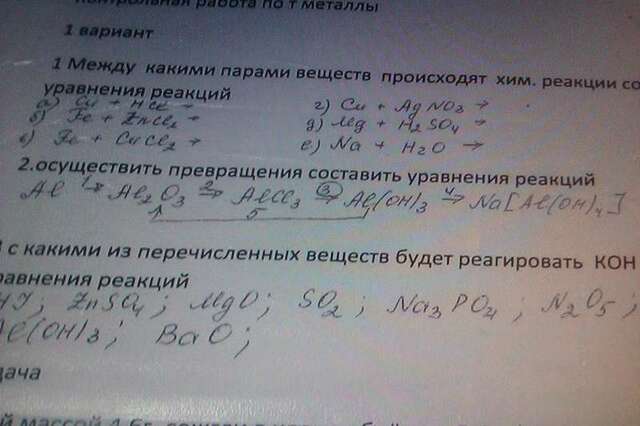 контрольная работа по т металлы
1 вариант
1 Между какими парами веществ происходят хим. реакции со
уравнения реакций
а) Cu + HCl → г) Cu + AgNO3 →
б) Fe + ZnCl2 → д) Mg + H2SO4 →
в) Fe + CuCl2 → е) Na + H2O →
2.осуществить превращения составить уравнения реакций
Al 1→ Al2O3 2→ AlCl3 3→ Al(OH)3 4→ Na[Al(OH)4]
5
с какими из перечисленных веществ будет реагировать КОН
равнения реакций
HJ; ZnSO4; MgO; SO2; Na3PO4; N2O5;
Al(OH)3; BaO;
дача
й массой 4,6г